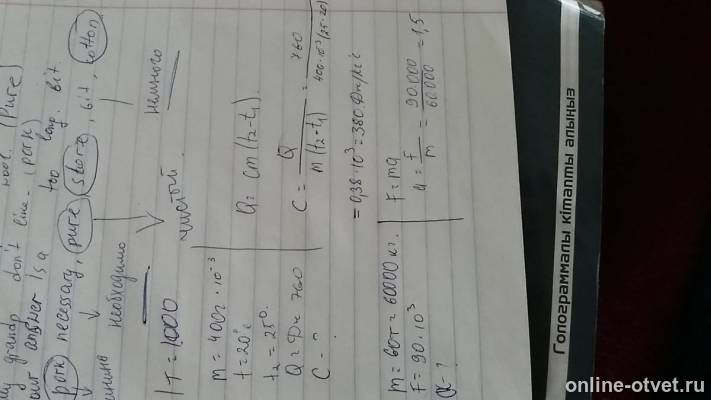 my grandp don't line (pork)
answer is a too long. bit.
pork necessary, pure, store, bit, cotton
необходимо
чистый
немного
1т = 1000
m = 400г · 10⁻³
t = 20°c
t₂ = 25°
Q = Дж 760
C = ?
Q = cm(t₂-t₁).
C = Q / m(t₂-t₁) = 760 / 400·10⁻³(25-20)
= 0,38 · 10³ = 380 Дж/кг°c
m = 60т = 60000 кг.
F = 90 · 10³
a - ?
F = ma
a = F / m = 90.000 / 60.000 = 1,5
Голограммалы кітапты алыңыз
online-otvet.ru